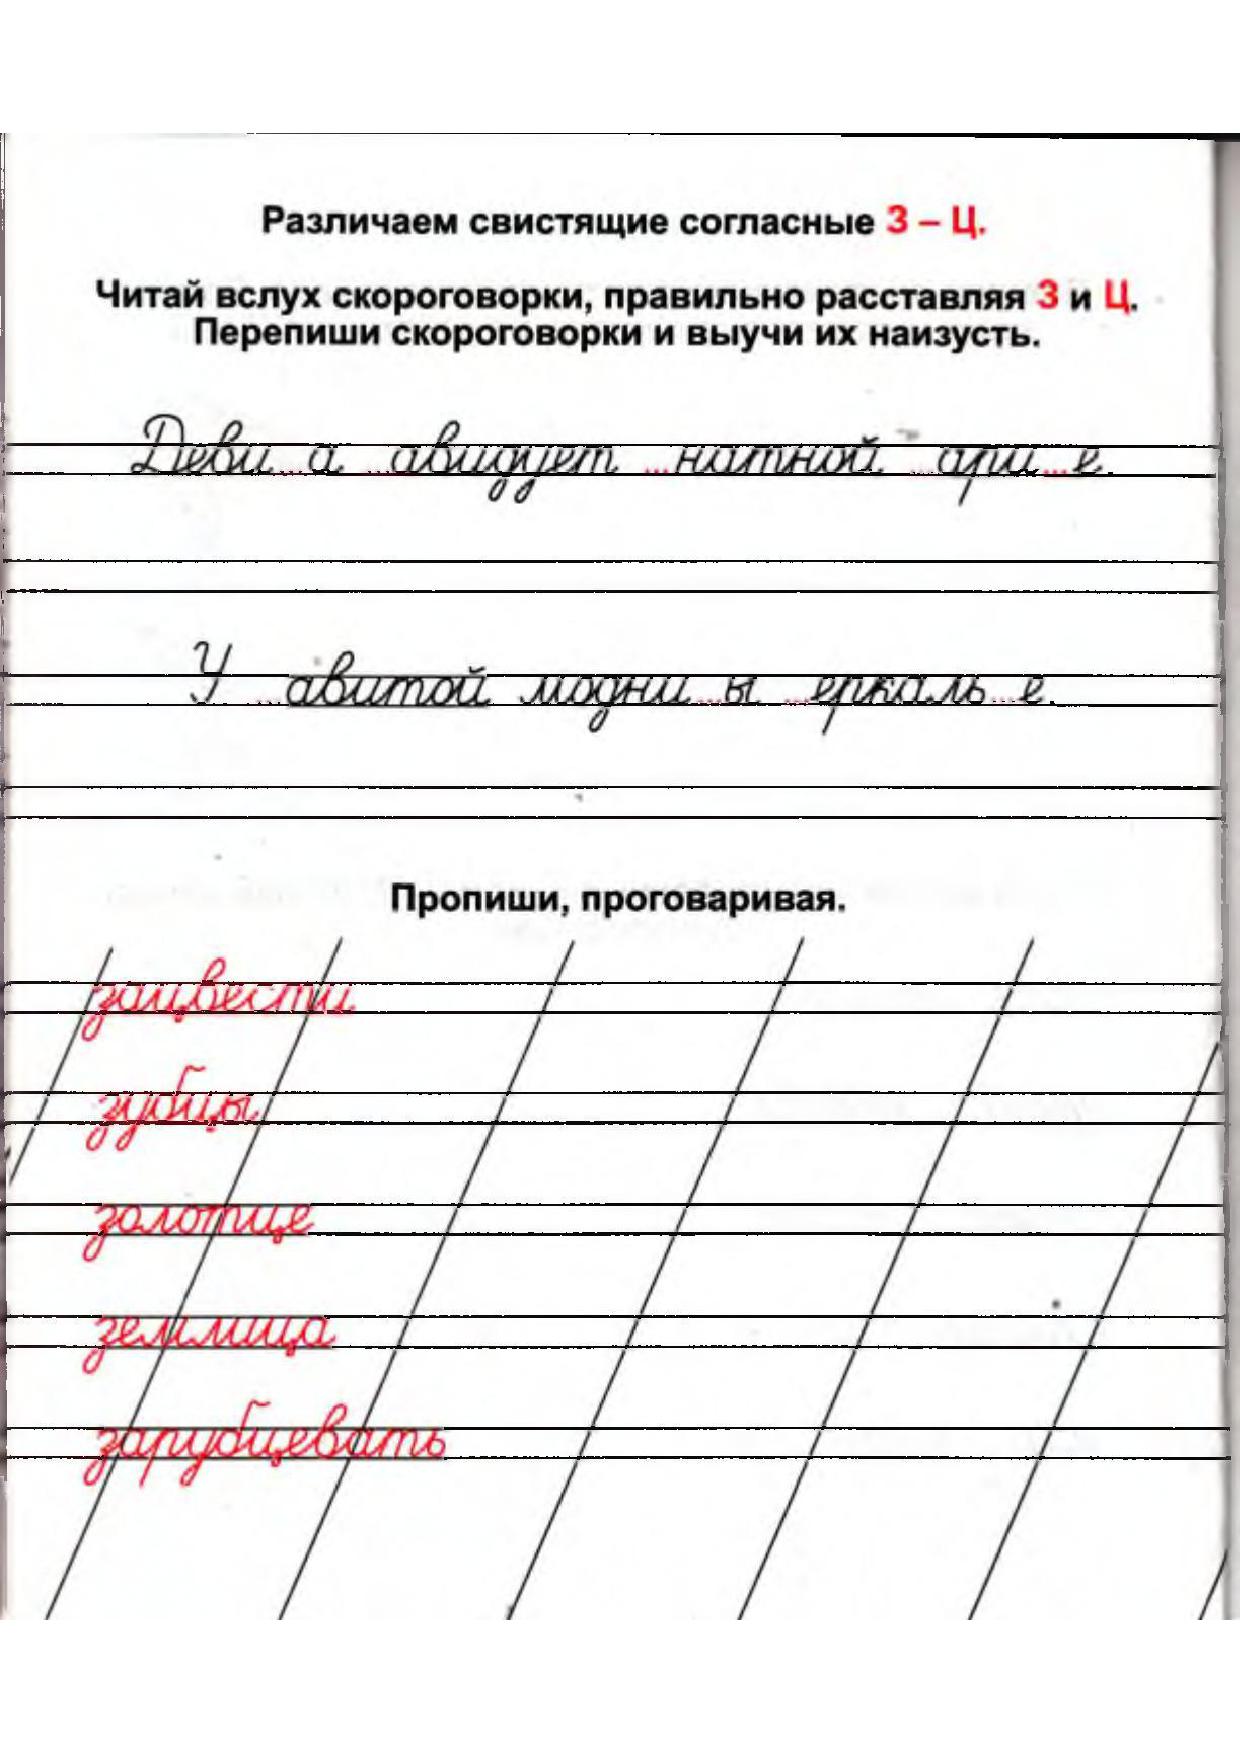 Различаем свистящие согласные З – Ц.
Читай вслух скороговорки, правильно расставляя З и Ц.
Перепиши скороговорки и выучи их наизусть.
Деви...а ...авидует ...натной ...ари...е.
У ...авитой модни...ы ...еркаль...е.
Пропиши, проговаривая.
зацвести
зубцы
золотце
землица
зарубцевать